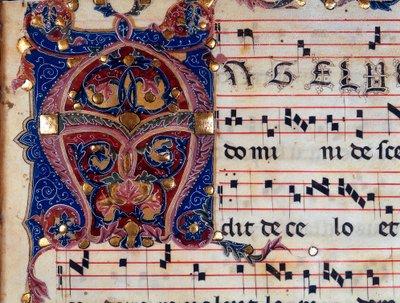 ANGELU
domi ni de sce
dit de ce lo et